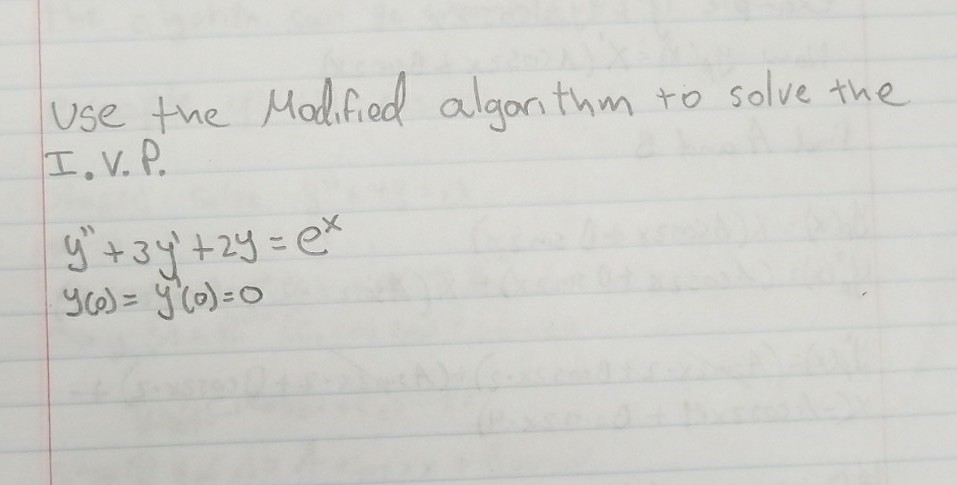 Use the Modified algorithm to solve the
I.V.P.
y" + 3y' + 2y = e^x
y(0) = y'(0) = 0